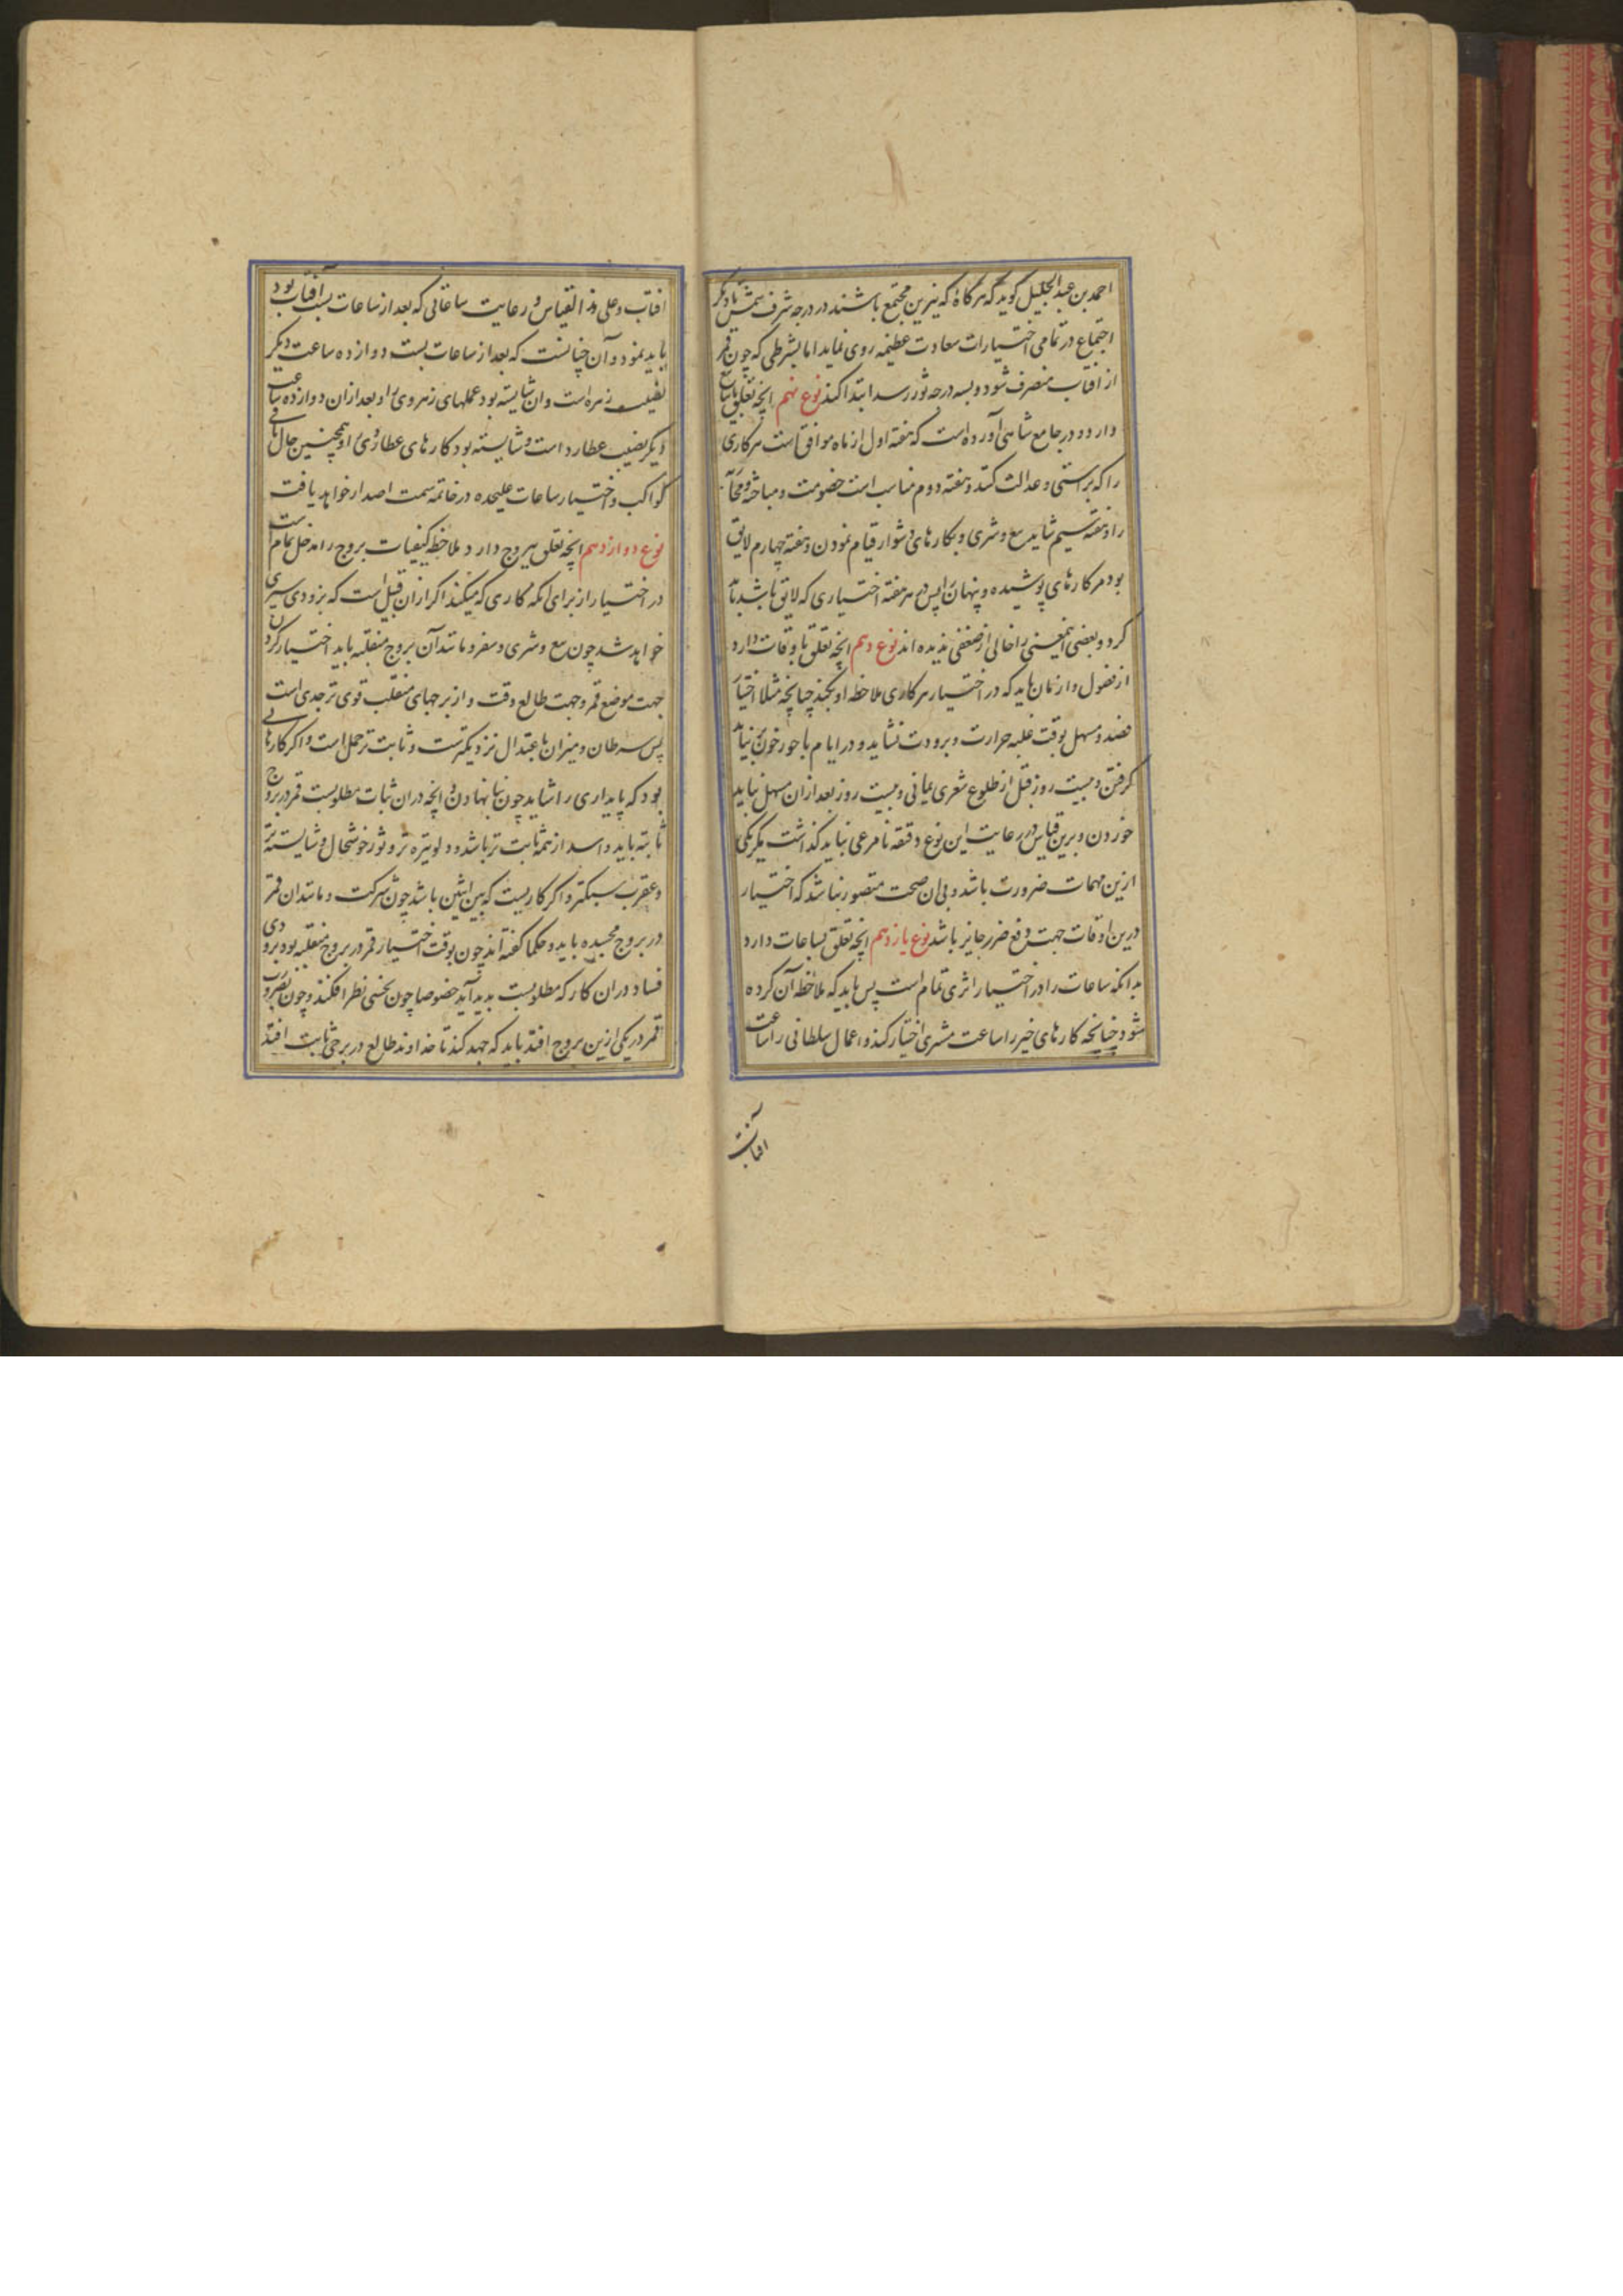 احمد بن عبد الجلیل کوید که هرکاه که نیرین مجتمع باشند در درجه شرف شمس
اجتماع در تمامی اختیارات سعادت عظیمه روی نماید اما بشرطی که چون قمر
از افتاب منصرف شود و بسه درجه ثور رسد ابتدا کند نوع نهم انچه تعلق
دارد و در جامع شاهی آورده است که هفته اول از ماه موافق است هر کاری
را که براستی و عدالت کنند و هفته دوم مناسب است خصومت و مباحثه و
را و هفته سیم شاید بیع و شری و بکارهای دشوار قیام نمودن و هفته چهارم لایق
بود مر کارهای پوشیده و پنهان را پس در هر هفته اختیاری که لایق باشد باید
کرد و بعضی اینمعنی را خالی از ضعفی ندیده اند نوع دهم انچه تعلق باوقات دارد
از فصول و ازمان باید که در اختیار هر کاری ملاحظه او بکنند چنانچه مثلا اختیار
فصد و مسهل بوقت غلبه حرارت و برودت نشاید و در ایام باحور خون نباید
کرفتن و بیست روز قبل از طلوع شعری یمانی و بیست روز بعد از ان مسهل نباید
خوردن و برین قیاس در رعایت این نوع دقیقه نامرعی نباید کذاشت مکر یکی
ازین مهمات ضرورت باشد و بی ان صحت متصور نباشد که اختیار
درین اوقات جهت دفع ضرر جایز باشد نوع یازدهم انچه تعلق بساعات دارد
بدانکه ساعات را در اختیار اثری تمام است پس باید که ملاحظه آن کرده
شود چنانچه کارهای خیر را ساعت مشتری اختیار کنند و اعمال سلطانی را ساعت
افتاب
افتاب و علی هذا القیاس و رعایت ساعاتی که بعد از ساعات بست آفتاب بود
باید نمود و آن چنانست که بعد از ساعات بست دوازده ساعت دیکر
نصیب زهره است و ان شایسته بود عملهای زهروی را و بعد از ان دوازده ساعت
دیکر نصیب عطارد است و شایسته بود کارهای عطاردی را و همچنین حال باقی
کواکب و اختیار ساعات علیحده در خاتمه سمت اصدار خواهد یافت
نوع دوازدهم انچه تعلق ببروج دارد ملاحظه کیفیات بروج را مدخل تمام است
در اختیار از برای انکه کاری که میکنند اکر از ان قبیل است که بزودی سپری
خواهد شد چون بیع و شری و سفر و مانند آن بروج منقلبه باید اختیار کردن
جهت موضع قمر و جهت طالع وقت و از برجهای منقلب قوی تر جدی است
پس سرطان و میزان باعتدال نزدیکترست و ثابت تر حمل است و اکر کارهایی
بود که پایداری را شاید چون بنا نهادن و انچه در ان ثبات مطلوبست قمر در بروج
ثابته باید و اسد از همه ثابت تر باشد و دلو تیره تر و ثور خوشحال و شایسته تر
و عقرب سبکتر و اکر کاریست که بین اثنین باشد چون شرکت و مانند ان قمر
در بروج مجسده باید و حکما کفته اند چون بوقت اختیار قمر در بروج منقلبه بود بزودی
فساد در ان کار که مطلوبست پدید آید خصوصا چون نحسی نظر افکند و چون بضرورت
قمر در یکی ازین بروج افتد باید که جهد کنند تا خداوند طالع در برجی ثابت افتد